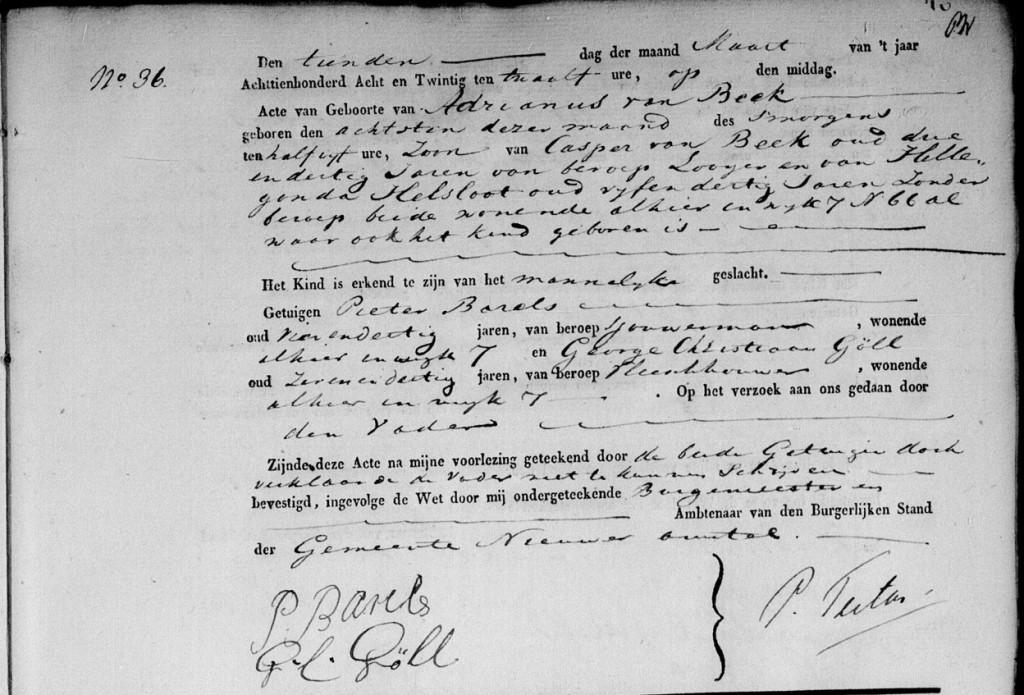 No 36.
Den tienden dag der maand Maart van 't jaar
Achttienhonderd Acht en Twintig ten twaalf ure, op den middag.
Acte van Geboorte van Adrianus van Beek
geboren den achtsten dezer maand des smorgens
ten half vyf ure, Zoon van Casper van Beek oud drie
en dertig Jaren van beroep Looyer en van Helle-
gonda Helsloot oud vyfendertig Jaren Zonder
beroep beide wonende alhier in wyk 7 N 66 al
waar ook het kind geboren is
Het Kind is erkend te zijn van het mannelyke geslacht.
Getuigen Pieter Barels
oud vierendertig jaren, van beroep Sjouwerman, wonende
alhier in wyk 7 en George Christiaan Göll
oud Zevenendertig jaren, van beroep Vleeschhouwer, wonende
alhier in wyk 7. Op het verzoek aan ons gedaan door
den Vader
Zijnde deze Acte na mijne voorlezing geteekend door de beide Getuigen doch
verklaarde de Vader niet te kunnen Schrijven
bevestigd, ingevolge de Wet door mij ondergeteekende Burgemeester en
Ambtenaar van den Burgerlijken Stand
der Gemeente Nieuwer amstel.
P. Barels
G. C. Göll